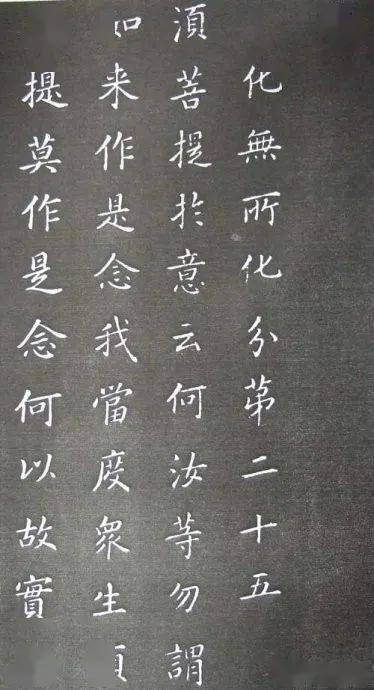 化無所化分苐二十五
湏菩提扵意云何汝等勿謂
来作是念我當度衆生
提莫作是念何以故實